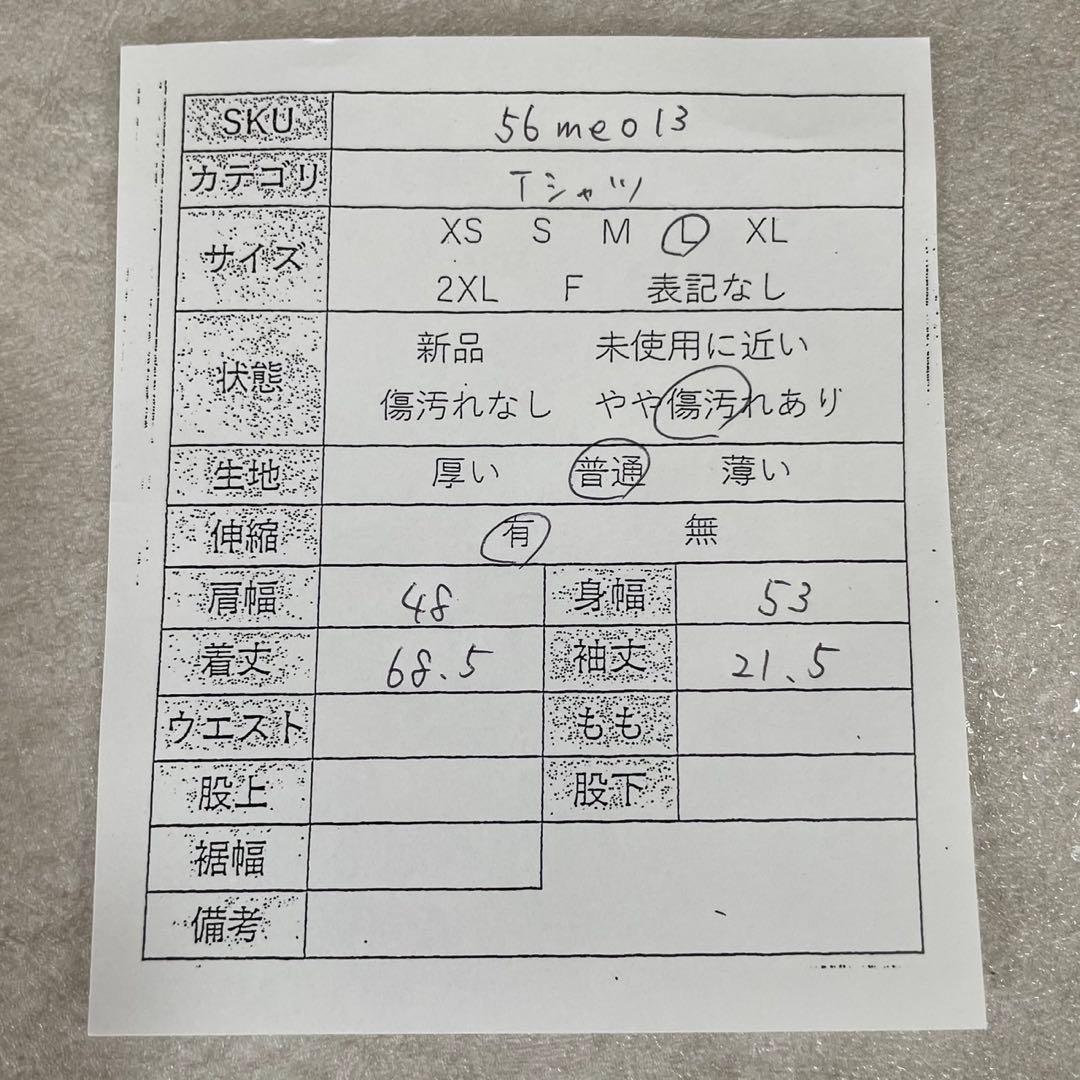 SKU 56me013
カテゴリ Tシャツ
サイズ XS S M L XL
2XL F 表記なし
状態 新品 未使用に近い
傷汚れなし やや傷汚れあり
生地 厚い 普通 薄い
伸縮 有 無
肩幅 48 身幅 53
着丈 68.5 袖丈 21.5
ウエスト もも
股上 股下
裾幅
備考